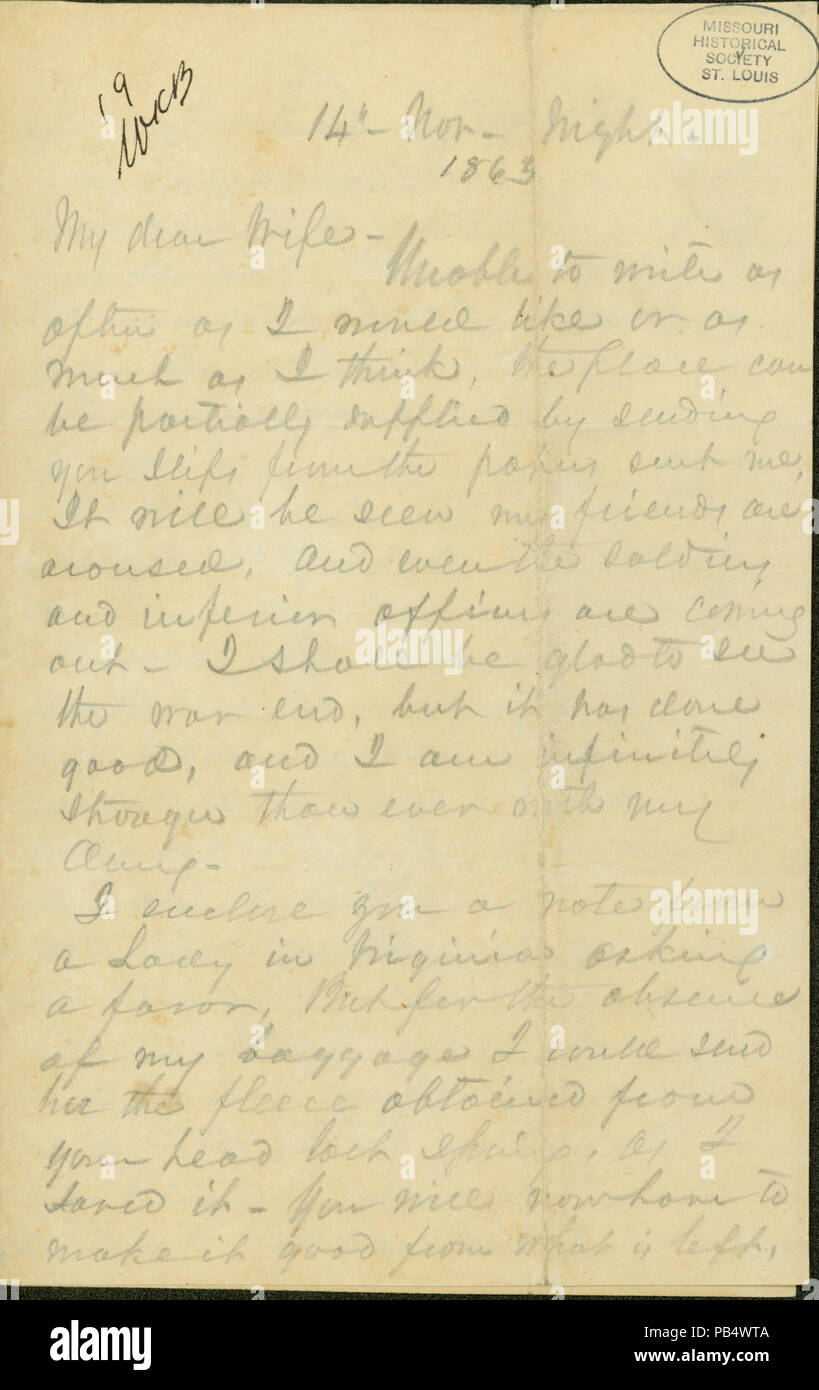 MISSOURI
HISTORICAL
SOCIETY
ST. LOUIS
19
WKB
14" - Nov - Night.
1863
My dear Wife -
Unable to write as
often as I would like or as
much as I think, the place can
be partially supplied by sending
you slips from the papers sent me,
It will be seen my friends are
aroused, and even the soldiers
and inferior officers are coming
out - I shall be glad to see
the war end, but it has done
good, and I am infinitely
stronger than ever with my
Army -
I enclose you a note from
a Lady in Virginia asking
a favor, But for the absence
of my baggage I would send
her the fleece obtained from
your head last Spring, as I
saved it - You will now have to
make it good from what is left,
alamy
alamy
Image ID: PB4WTA
www.alamy.com